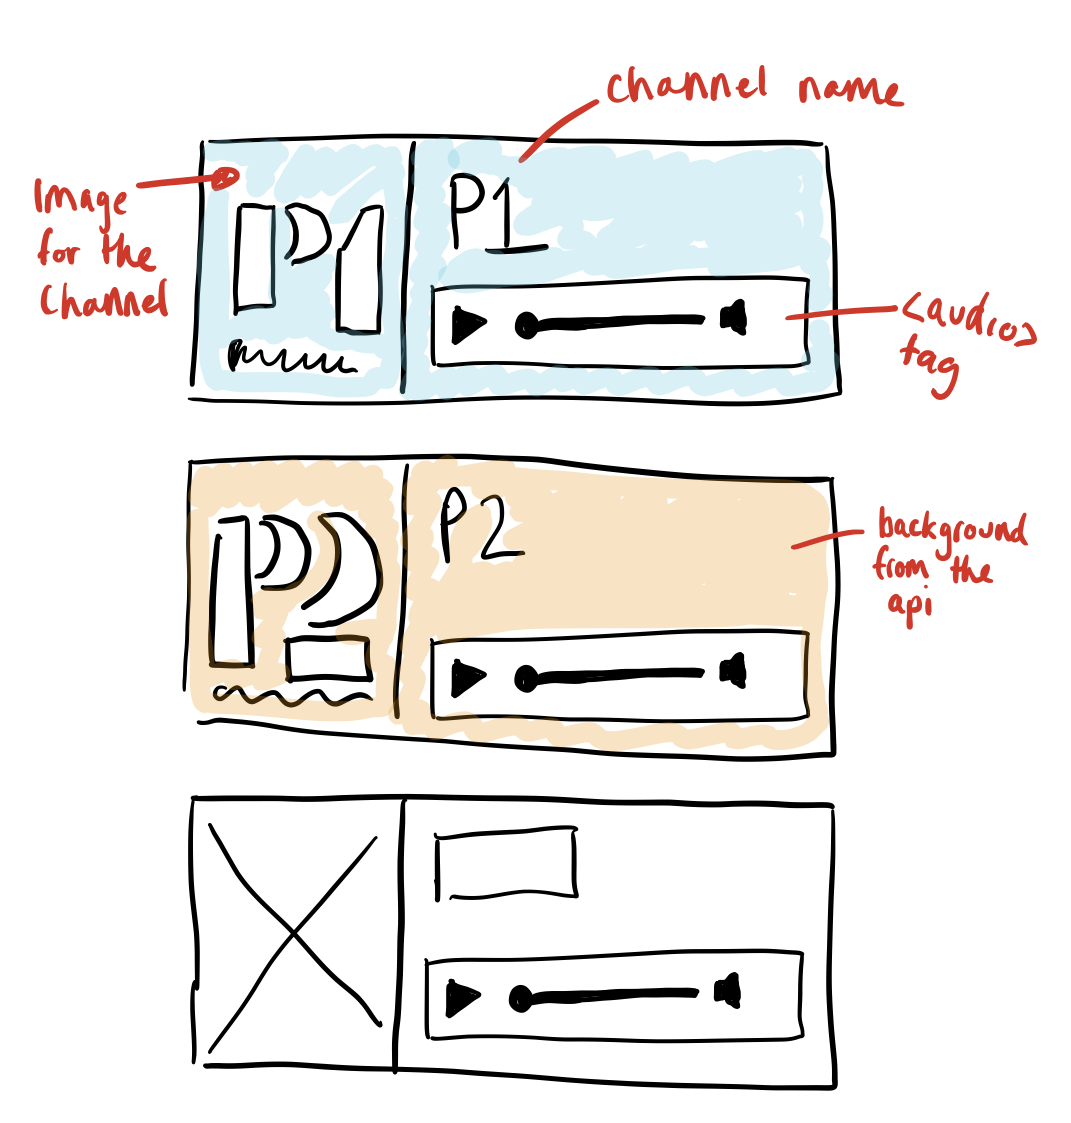 channel name
Image
for the
Channel
P1
P1
<audio>
tag
P2
P2
background
from the
api